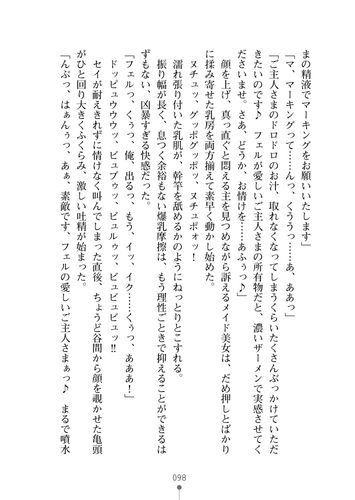 まの精液でマーキングをお願いいたします」
「マ、マーキングって……んっ、くううっ……あ、ああっ」
「ご主人さまのドロドロのお汁、取れなくなってしまうくらいたくさんぶっかけていただ
きたいのです♪　フェルが愛しいご主人さまの所有物だと、濃いザーメンで実感させてく
ださいませ。さあ、どうか、お情けを……あふぅっ♪」
　顔を上げ、真っ直ぐと悶える主を見つめながら訴えるメイド美女は、だめ押しとばかり
に揉み寄せた乳房を両方揃えて素早く動かし始めた。
　ヌチュッ、グッポグッポッ、ヌチュポォッ！
　濡れ張り付いた乳肌が、幹竿を舐めるかのようにねっとりとこすれる。
　振り幅が長く、息つく余裕もない爆乳摩擦は、もう理性ごときで抑えることができるは
ずもない、凶暴すぎる快感だった。
「フェルっ、くぅっ、俺、出るっ、もう、イッ、イク……くぅっ、あああ！」
　ドッピュウウウッ、ビュブウッ、ビュルゥッ、ビュビュビュッ!!
　セイが耐えきれずに情けなく叫んでしまった直後、ちょうど谷間から顔を覗かせた亀頭
がひと回り大きくふくらみ、激しい吐精が始まった。
「んぶっ、はぁんぅっ、あぁ、素敵です、フェルの愛しいご主人さまぁっ♪　まるで噴水
098